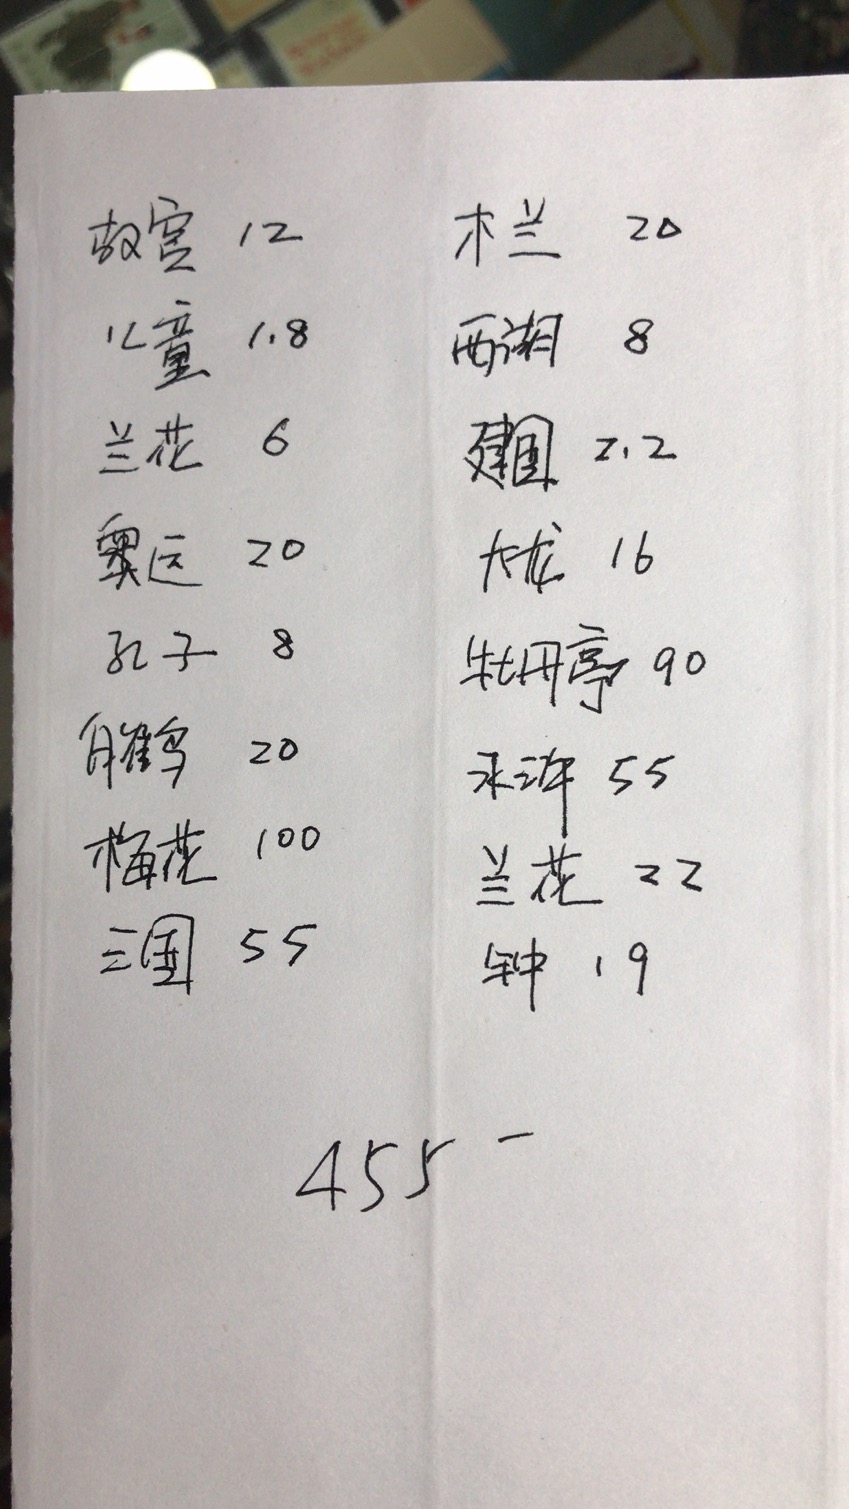 故宫 12
儿童 1.8
兰花 6
奥运 20
孔子 8
白鹤 20
梅花 100
三国 55
木兰 20
西湖 8
建国 2.2
大龙 16
牡丹亭 90
水浒 55
兰花 22
钟 19
455 -